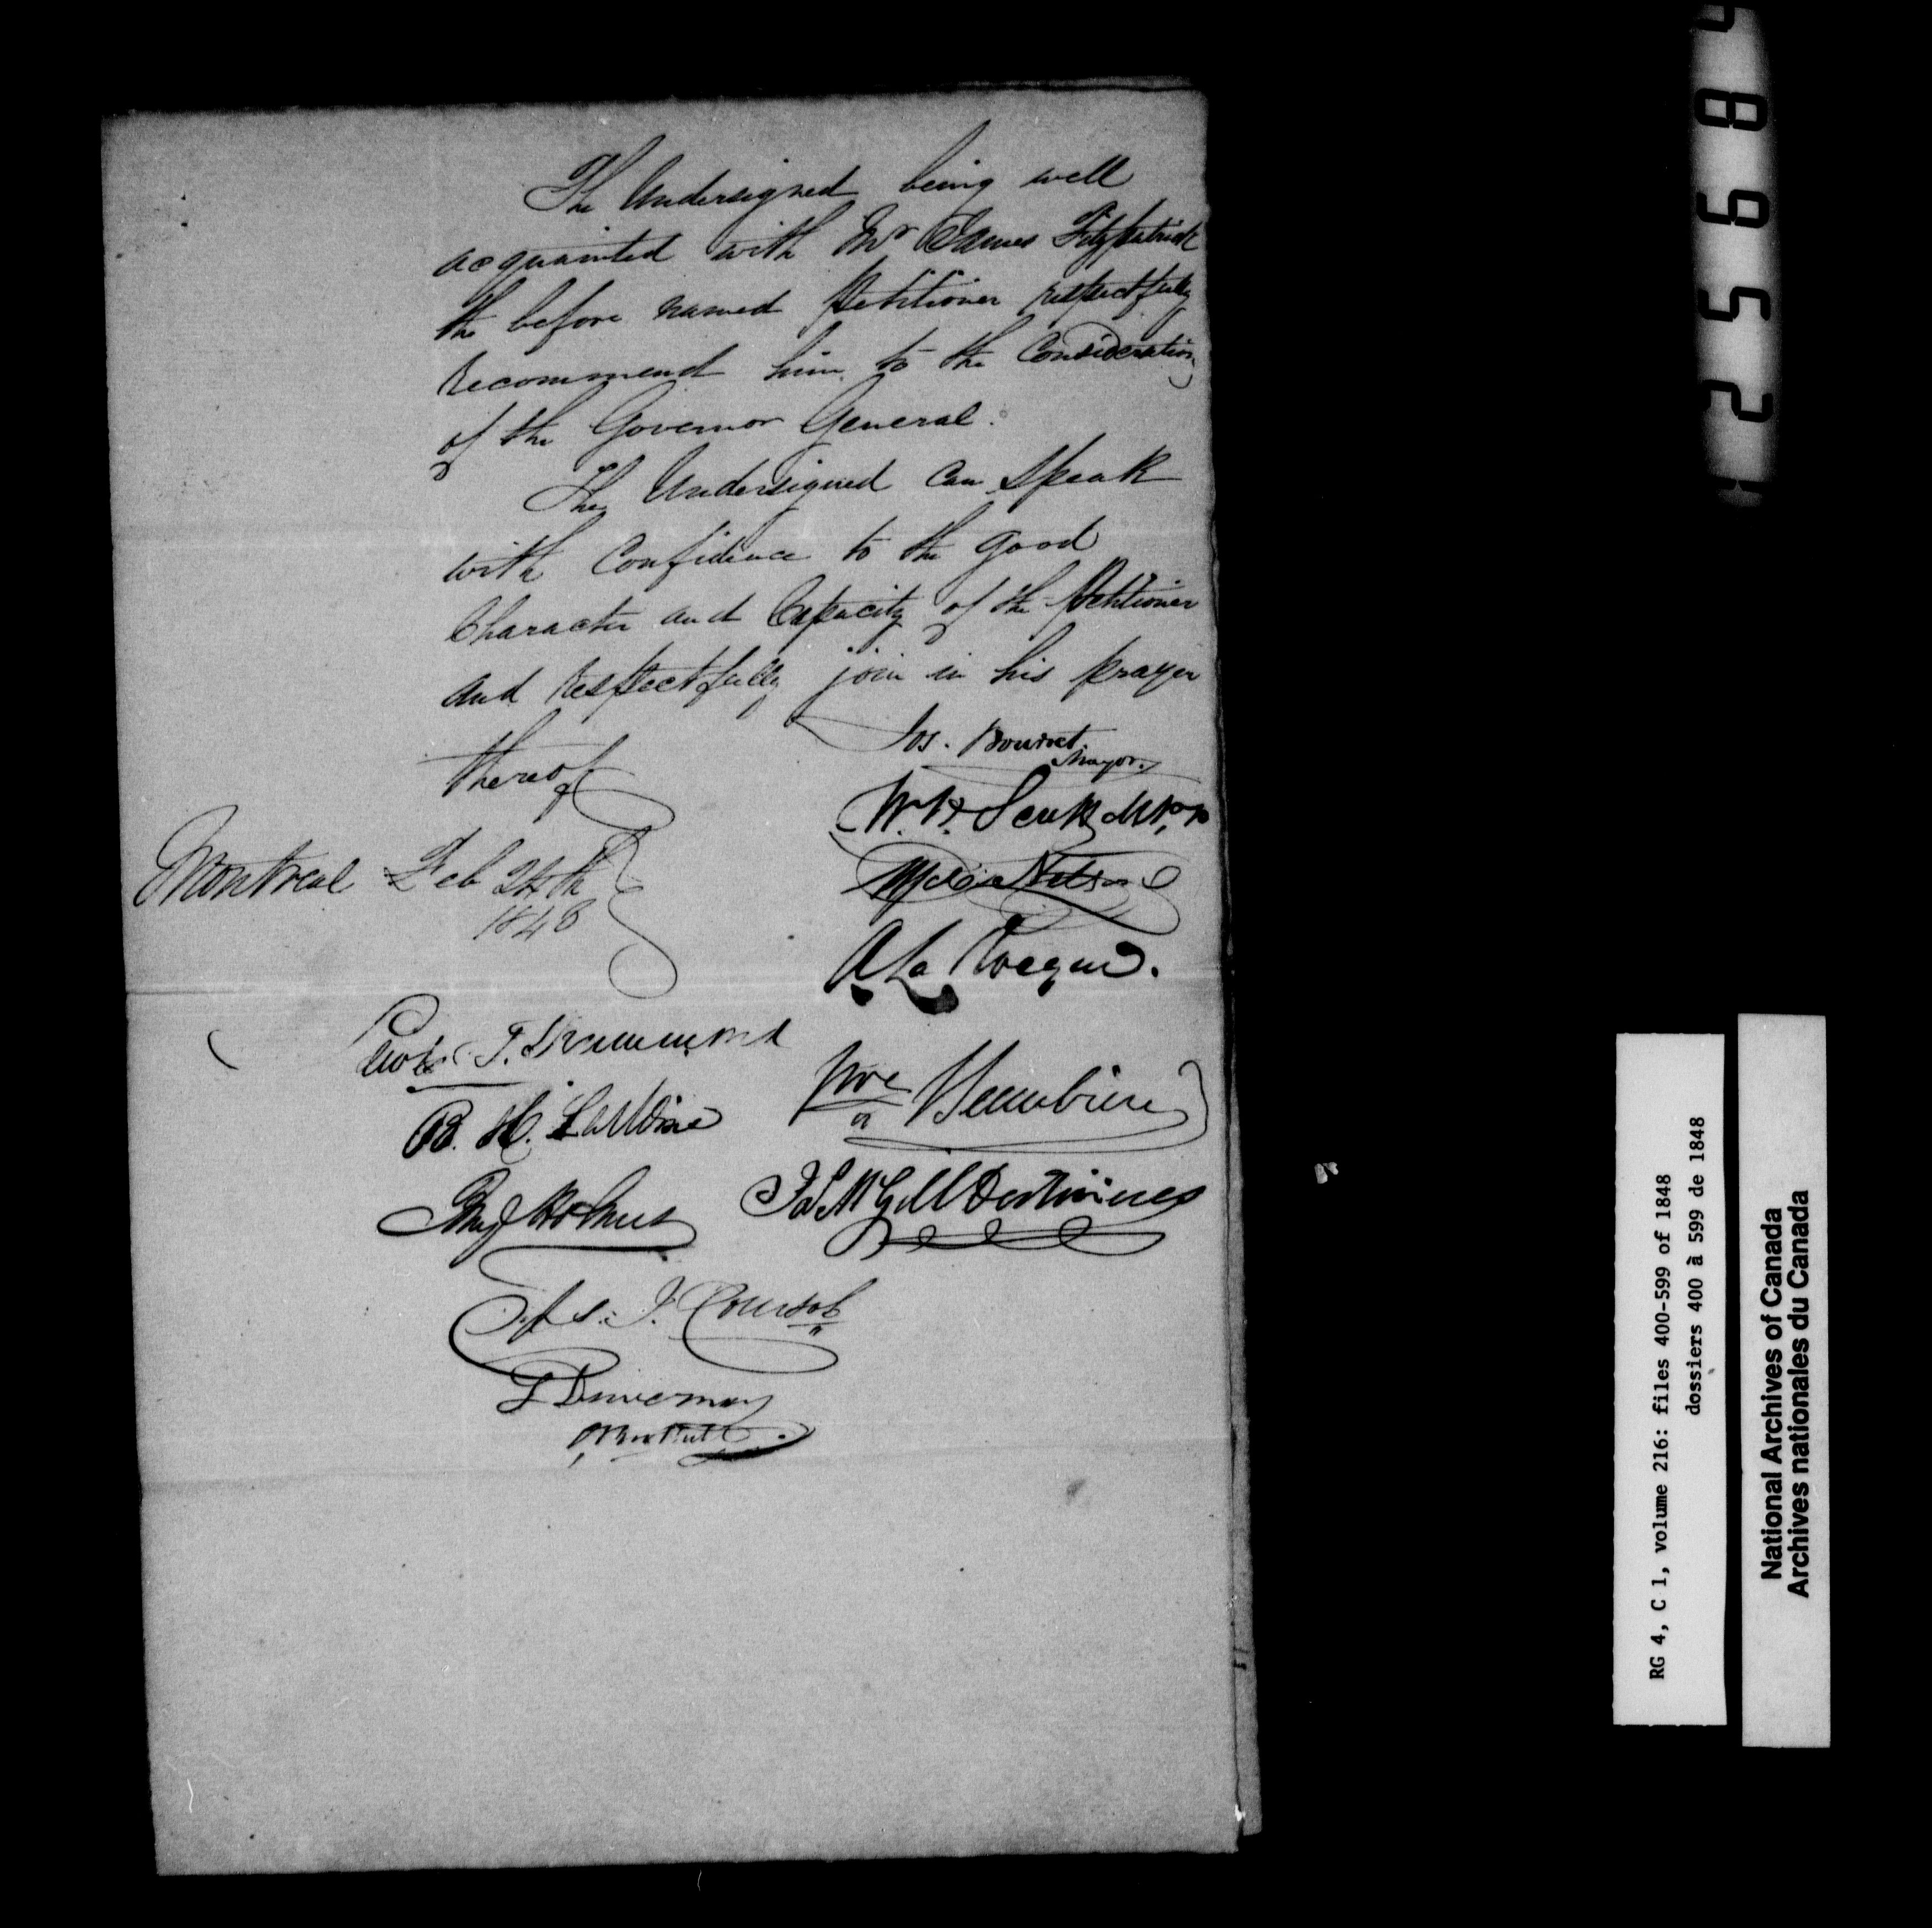 The Undersigned being well
acquainted with Mr James Fitzpatrick
the before named Petitioner respectfully
recommend him to the Consideration
of the Governor General.
The Undersigned can speak
with Confidence to the good
Character and Capacity of the Petitioner
and respectfully join in his prayer
thereof
Montreal Feb 24th
1848
Jos. Bourret
Mayor.
W. H. Scott M.P.P
Wolfred Nelson
A La Rocque.
Lewis T. Drummond
Bre Beaubien
B. H. LeMoine
Benj Holmes
J. L. McGill Desrivieres
Chs. J. Coursol
L Duvernay
2568
RG 4, C 1, volume 216: files 400-599 of 1848
dossiers 400 à 599 de 1848
National Archives of Canada
Archives nationales du Canada